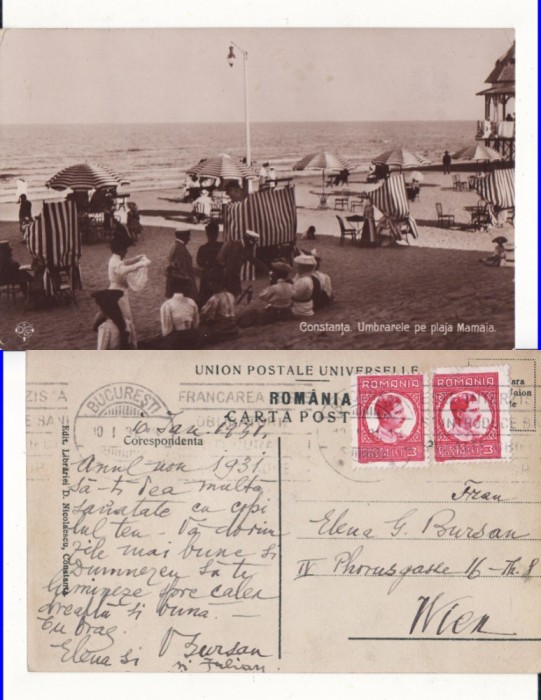 Constanța. Umbrarele pe plaja Mamaia.
UNION POSTALE UNIVERSELLE
ROMÂNIA
CARTA POST
Corespondenta
Edit. Librăriei D. Nicolaescu, Constanța
BUCUREȘTI
FRANCAREA
ROMANIA
ROMANIA
3
3
Ian 1931
Anul nou 1931
să-ti dea multă
sanatate cu copi
lul teu - Va dorim
zile mai bune si
Dumnezeu să te
lumineze spre calea
dreaptă si bună. -
Cu drag
Elena si V Bursan
si Iulian
Frau
Elena G. Bursan
IV Phorusgasse 16 - Th. 8
Wien